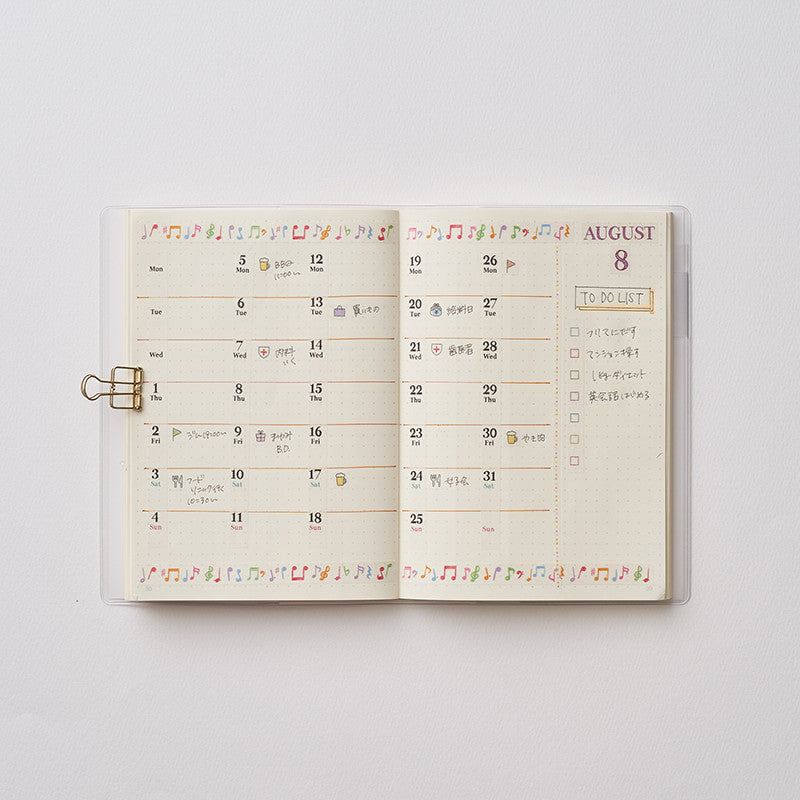 AUGUST
8
TO DO LIST
フリマにだす
マンションを探す
しんけんダイエット
英会話はじめる
Mon
Tue
Wed
1
Thu
2
Fri
ジム 19:00〜
3
Sat
フード
10:30〜
4
Sun
5
Mon
BBQ
11:00〜
6
7
Wed
内科
いく
8
Thu
9
Fri
B.D.
10
Sat
11
Sun
12
Mon
13
Tue
買いもの
14
Wed
15
Thu
16
Fri
17
Sat
18
Sun
19
Mon
20
Tue
給料日
21
Wed
歯医者
22
Thu
23
Fri
24
Sat
女子会
25
Sun
26
Mon
27
Tue
28
Wed
29
Thu
30
Fri
やき肉
31
Sat
Sun